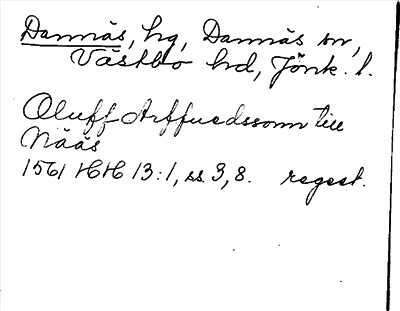 Dannäs, hg, Dannäs sn,
Västbo hd, Jönk. l.
Oluff Arffuedssonn till
Nääs
1561 HH 13:1, ss. 3, 8. regest.